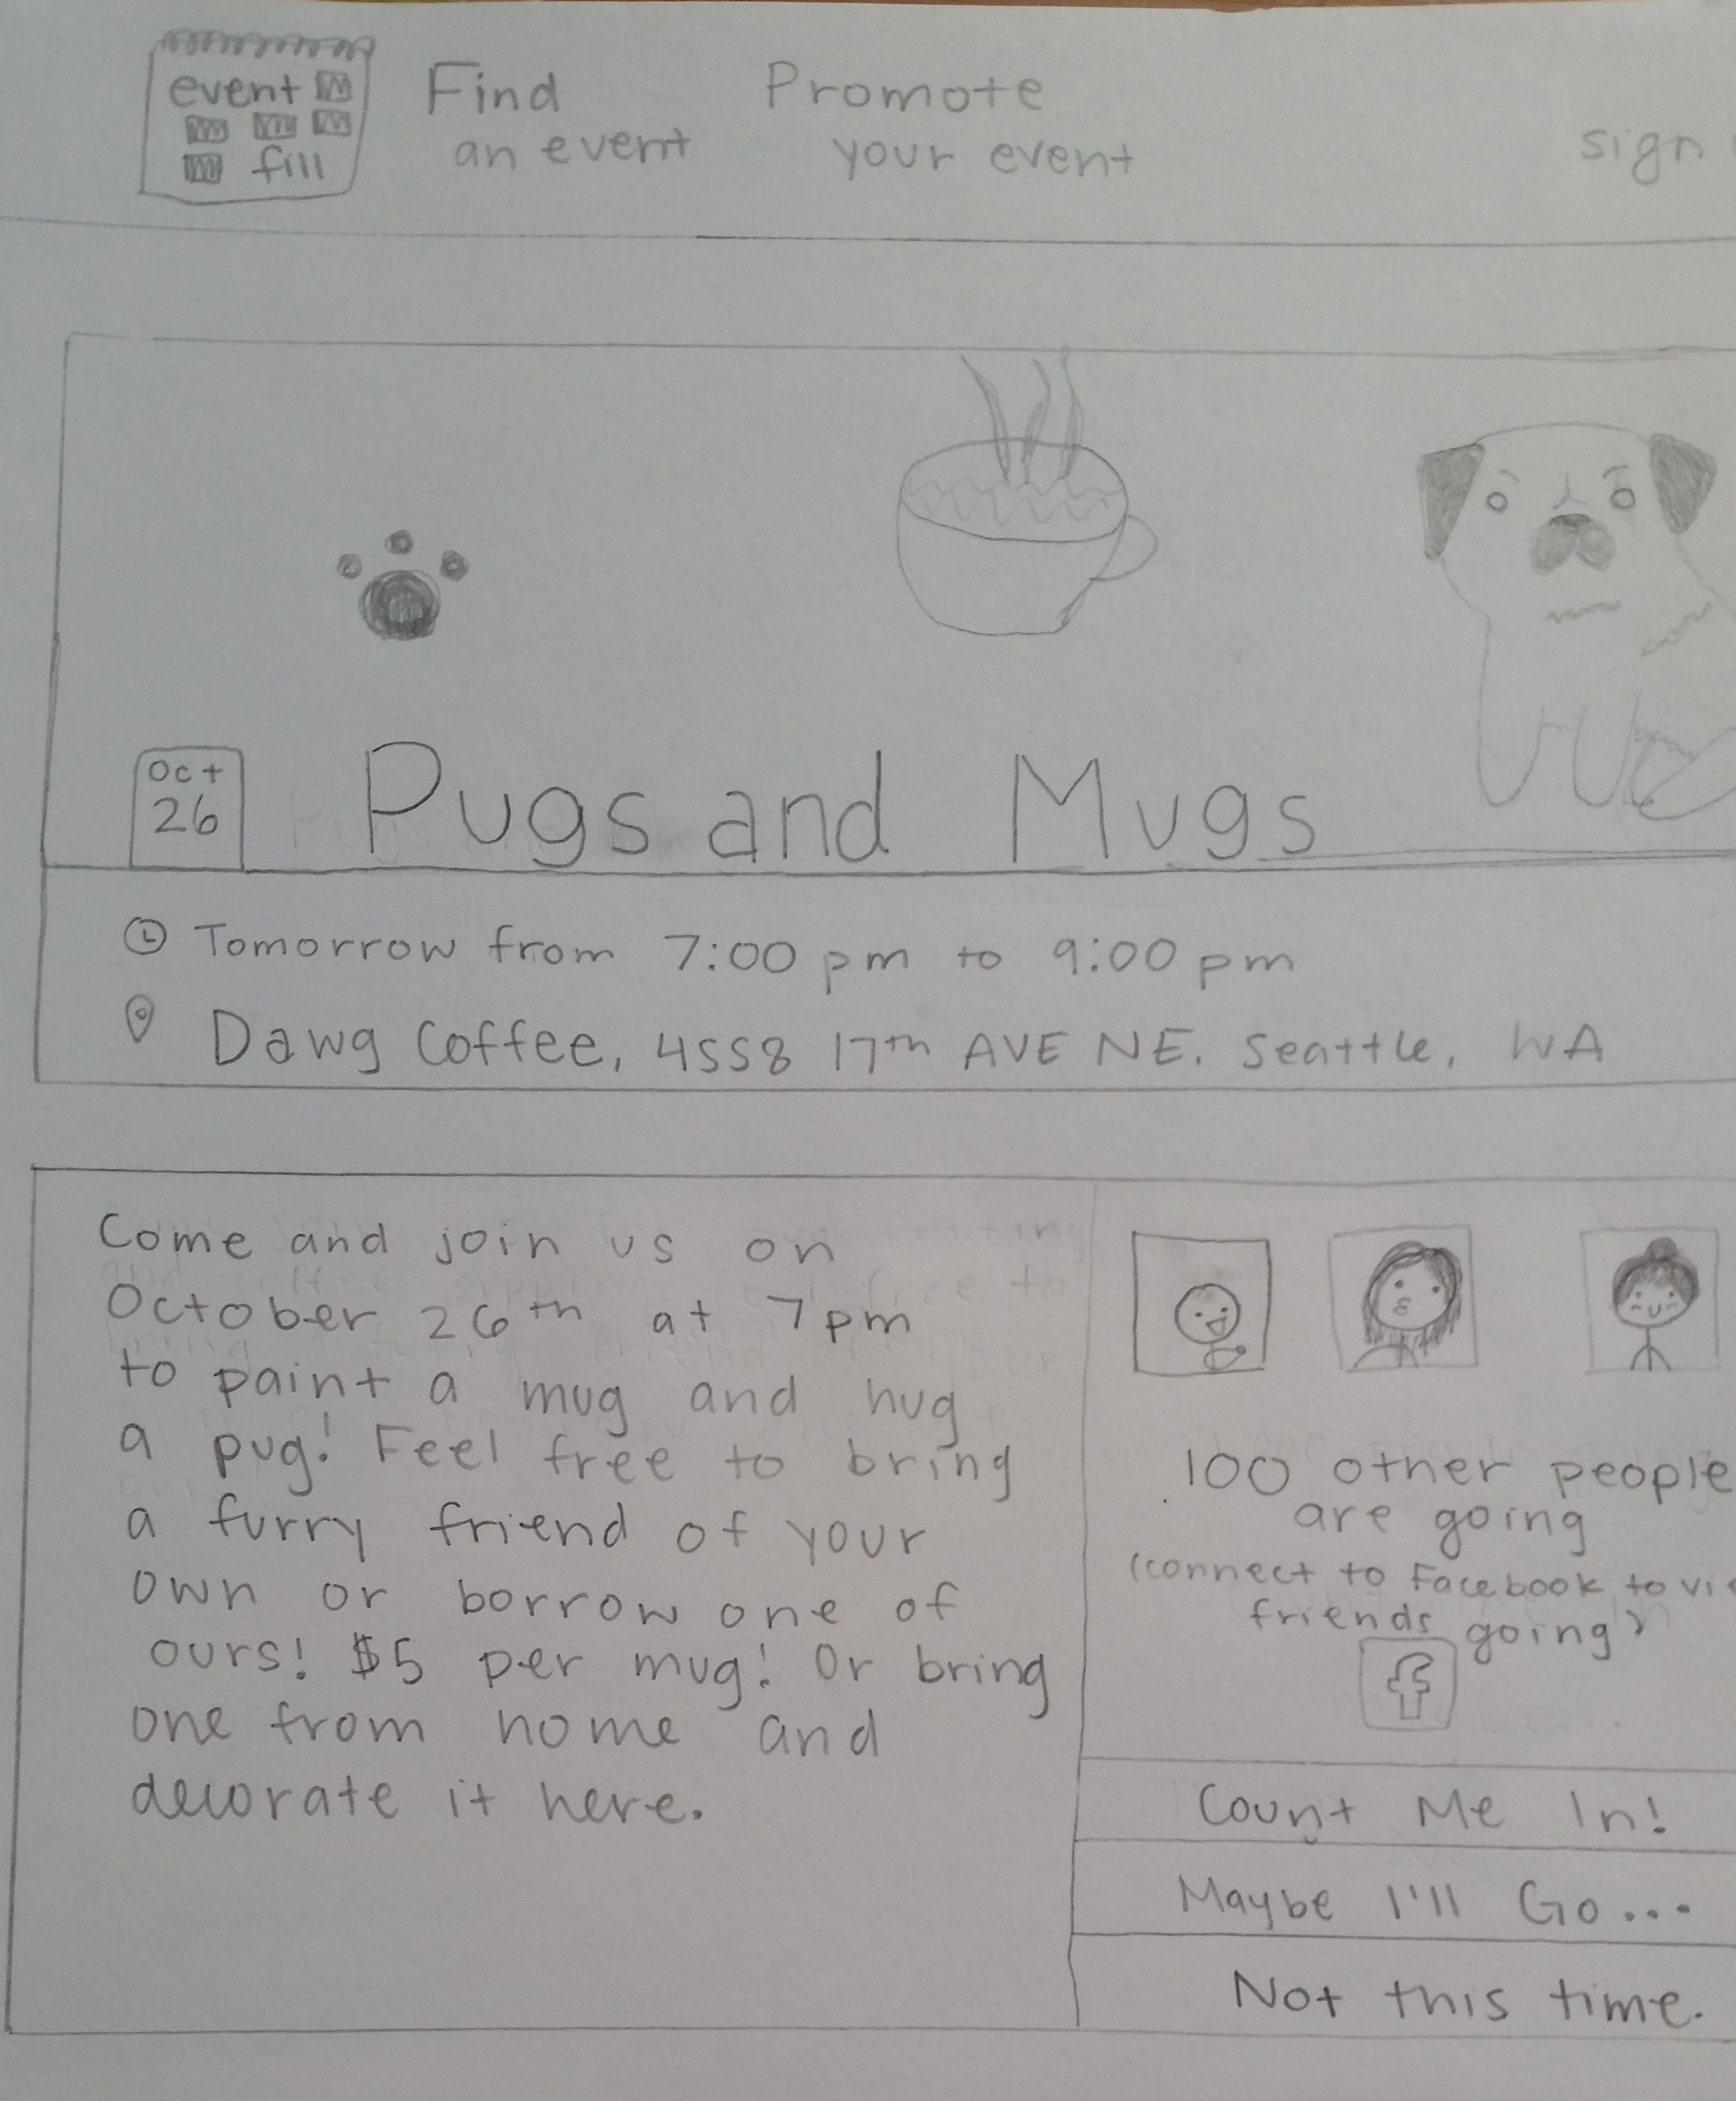 event
fill
Find
an event
Promote
your event
sign
Oct
26
Pugs and Mugs
Tomorrow from 7:00 pm to 9:00 pm
Dawg Coffee, 4558 17th AVE NE. Seattle, WA
Come and join us on
October 26th at 7pm
to paint a mug and hug
a pug! Feel free to bring
a furry friend of your
own or borrow one of
ours! $5 per mug! Or bring
one from home and
decorate it here.
100 other people
are going
(connect to Facebook to
friends going)
f
Count Me In!
Maybe I'll Go...
Not this time.